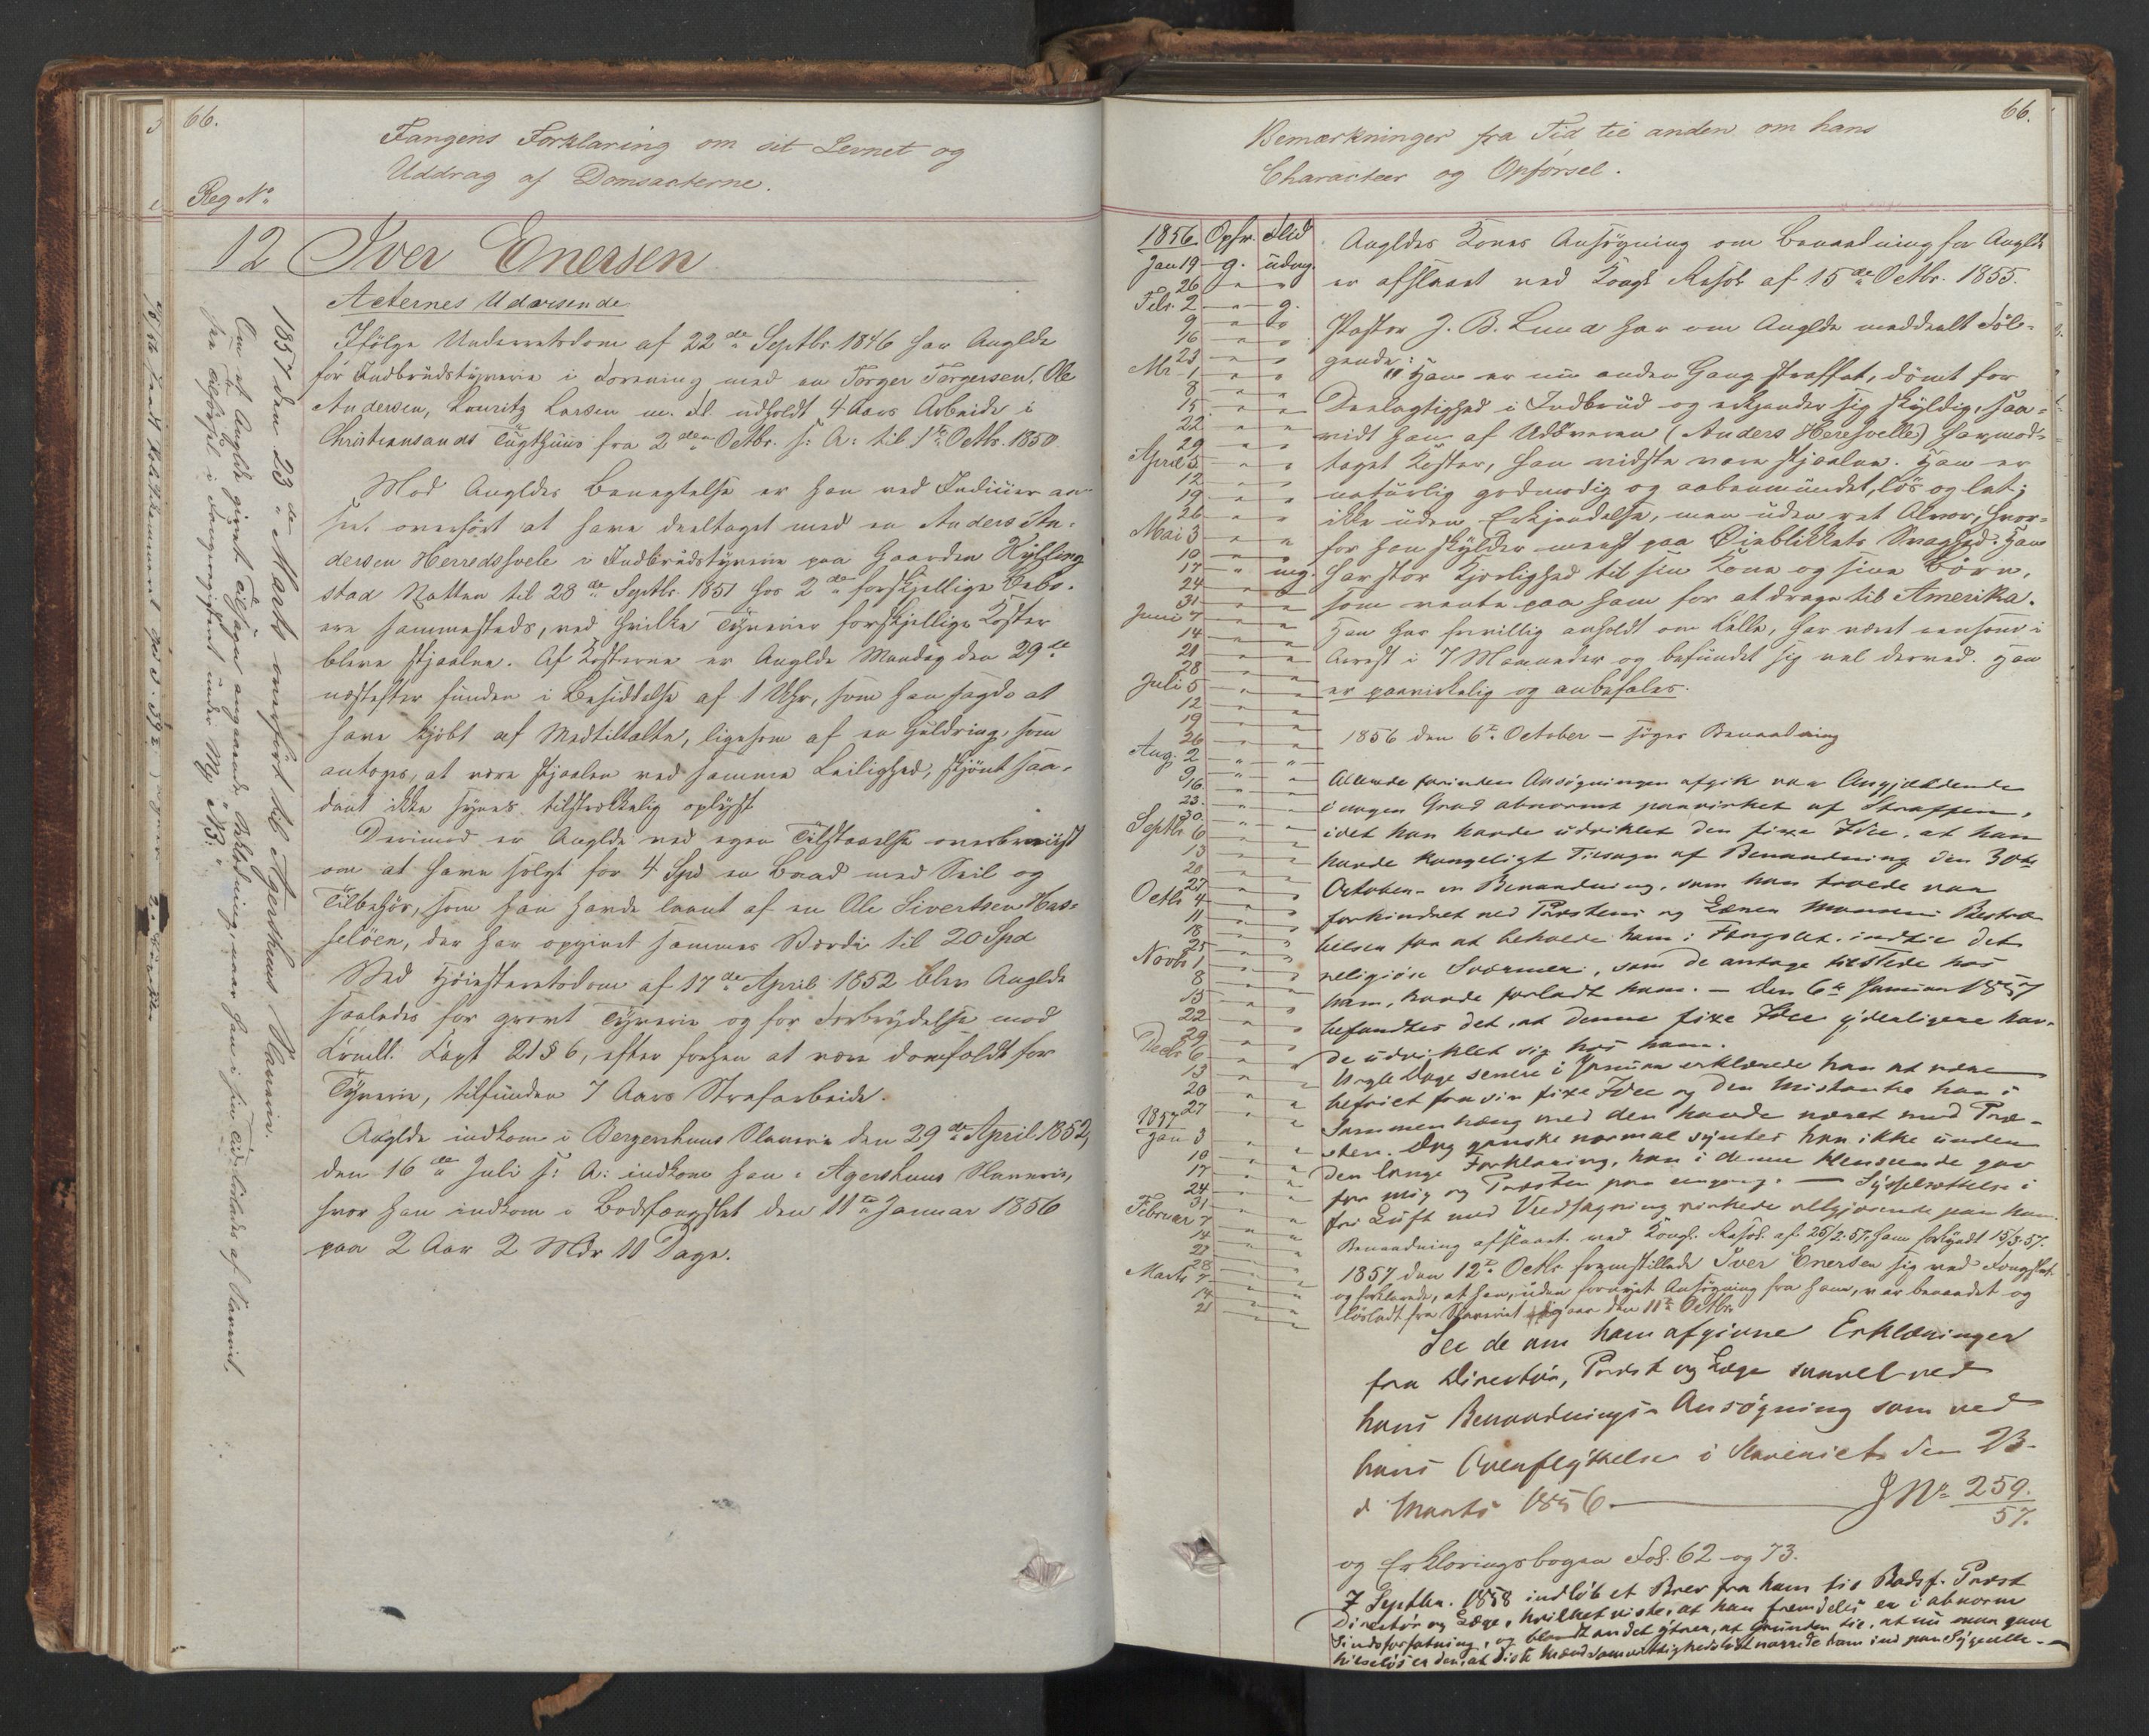 66.
Fangens Forklaring om sit Levnet og
Uddrag af Domsacterne.
Reg No
12 Iver Enersen
Acternes Udvisende
Ifölge Underretsdom af 22de Septbr 1846 har Anglde
for Indbrudstyverie i Forening med en Torger Torgersen, Ole
Andersen, Lauritz Larsen m. Fl. udholdt 4 Aars Arbeide i
Christiansands Tugthuus fra 2den Octbr. s: A: til 1ste Octbr. 1850.
Mod Angldes Benegtelse er han ved Indicier an-
seet overfört at have deeltaget med en Anders An-
dersen Herredsvele i Indbrudstyverie paa Gaarden
stad Natten til 28de Septbr 1851 hos 2de forskjellige Bebo-
ere sammesteds, ved hvilke Tyverier forskjellige Koster
bleve stjaalne. Af Kosterne er Anglde Mandag den 29de
næstefter funden i Besiddelse af 1 Uhr, som han sagde at
have kjöbt af Medtiltalte, ligesom af en Guldring, som
antoges, at være stjaalen ved samme Leilighed, skjönt saa-
dant ikke synes tilstrækkelig oplyst
Derimod er Anglde ved egen Tilstaaelse overbeviist
om at have solgt for 4 Spd en Baad med Seil og
Tilbehör, som han havde laant af en Ole Sivertsen Has-
selöen, der har opgivet sammes Værdi til 20 Spd
Ved Höiesteretsdom af 17de April 1852 blev Anglde
saaledes for grovt Tyverie og for Forbrydelse mod
Crimll. Capt 21 § 6, efter forhen at være domfældt for
Tyverie, tilfunden 7 Aars Strafarbeide.
Anglde indkom i Bergenhuus Slaverie den 29de April 1852,
den 16de Juli s: A: indkom han i Agershuus Slaverie,
hvor han indkom i Bodsfængslet den 11te Januar 1856
paa 2 Aar 2 Mdr 11 Dage.
1857 den 23de Marts overfört til Agershuus Slaverie.
Om et Anglde givet Tilsagn angaaende Beklædning, naar han i sin Tid löslades af Slaveriet,
see Tilförsel i Fangeregisteret under
66.
Bemærkninger fra Tid til anden om hans
Characteer og Opförsel.
1856. Opf. Flid
Jan 19 g. udm.
26 " "
Febr. 2 " g.
9 " "
16 " "
23 " "
Mr. 1 " "
8 " "
15 " "
22 " "
29 " "
April 5 " "
12 " "
19 " "
26 " "
Mai 3 " "
10 " "
17 " mg.
24 " "
31 " "
Juni 7 " "
14 " "
21 " "
28 " "
Juli 5 " "
12 " "
19 " "
26 " "
Aug. 2 " "
9 " "
16 " "
23 " "
30 " "
Septbr 6 " "
13 " "
20 " "
27 " "
Octbr 4 " "
11 " "
18 " "
25 " "
Novbr 1 " "
8 " "
15 " "
22 " "
29 " "
Decbr 6 " "
13 " "
20 " "
27 " "
1857
Jan 3 " "
10 " "
17 " "
24 " "
31 " "
Februar 7 " "
14 " "
21 " "
28 " "
Marts 7 " "
14 " "
21 " "
Angldes Kones Ansögning om Benaadning for Anglde
er afslaaet ved Kongl Resol. af 15de Octbr. 1855.
Pastor J. B. Lund har om Anglde meddeelt Föl-
gende:
"Han er nu anden Gang straffet, dömt for
Deelagtighed i Indbrud og erkjender sig skyldig, saa-
vidt han af Udöveren (Anders Heresvelle) har mod-
taget Koster, han vidste vare stjaalne. Han er
naturlig godmodig og aabenmundet, lös og let;
ikke uden Erkjendelse, men uden ret Alvor, hvor-
for han skylder meest paa Öieblikkets Svaghed. Han
har stor Kjerlighed til sin Kone og sine Börn,
som vente paa ham for at drage til Amerika.
Han har frivillig anholdt om Celle, har været eensom i
Arrest i 7 Maaneder og befundet sig vel derved. Han
er paavirkelig og anbefales.
1856 den 6te October – söger Benaadning
Allerede forinden Ansögningen afgik var Angjældende
i nogen Grad abnormt paavirket af Straffen,
idet han havde udviklet den fixe Idee, at han
havde kongeligt Tilsagn af Benaadning den 30te
October – en Benaadning, som han troede var
forhindret ved Præstens og Bestræ-
belser for at beholde ham i Fængslet, indtil det
religiöse Sværmeri, som de antage tilstede hos
ham, havde forladt ham. – Den 6te Januar 1857
befandtes det, at denne fixe Idee yderligere hav-
de udviklet sig hos ham.
Nogle Dage senere i Januar erklærede han at være
befriet fra sin fixe Idee og den Mistanke han i
Sammenhæng med den havde næret mod Præ-
sten. Dog ganske normal syntes han ikke under
den lange Forklaring, han i denne Henseende gav
for mig og Præsten paa engang. – Sysselsættelse i
fri Luft med Vedsagning virkede velgjörende paa ham.
Benaadning afslaaet ved Kongl. Resol. af 25/2. 57, ham forkyndt 13/3. 57.
1857 den 12te Octbr. fremstillede Iver Enersen sig ved Fængslet
og forklarede, at han, uden fornyet Ansögning fra ham, var benaadet og
lösladt fra Slaveriet igaar den 11te Octbr
See de om ham afgivne Erklæringer
fra Directör, Præst og Læge saavel ved
hans Benaadnings-Ansögning som ved
hans Overflyttelse i Slaveriet den 23-
d Marts 1856. J No 259.
57.
og Erklæringsbogen Fol. 62 og 73.
7 Septbr. 1858 indlöb et Brev fra ham til Bodsf. Præst
Directör og Læge, hvilket viste, at han fremdeles er i abnorm
Sindsforfatning, og blandt andet ytrer, at Grunden til, at nu
er den, at samvittighedslöst narrede ham ind paa